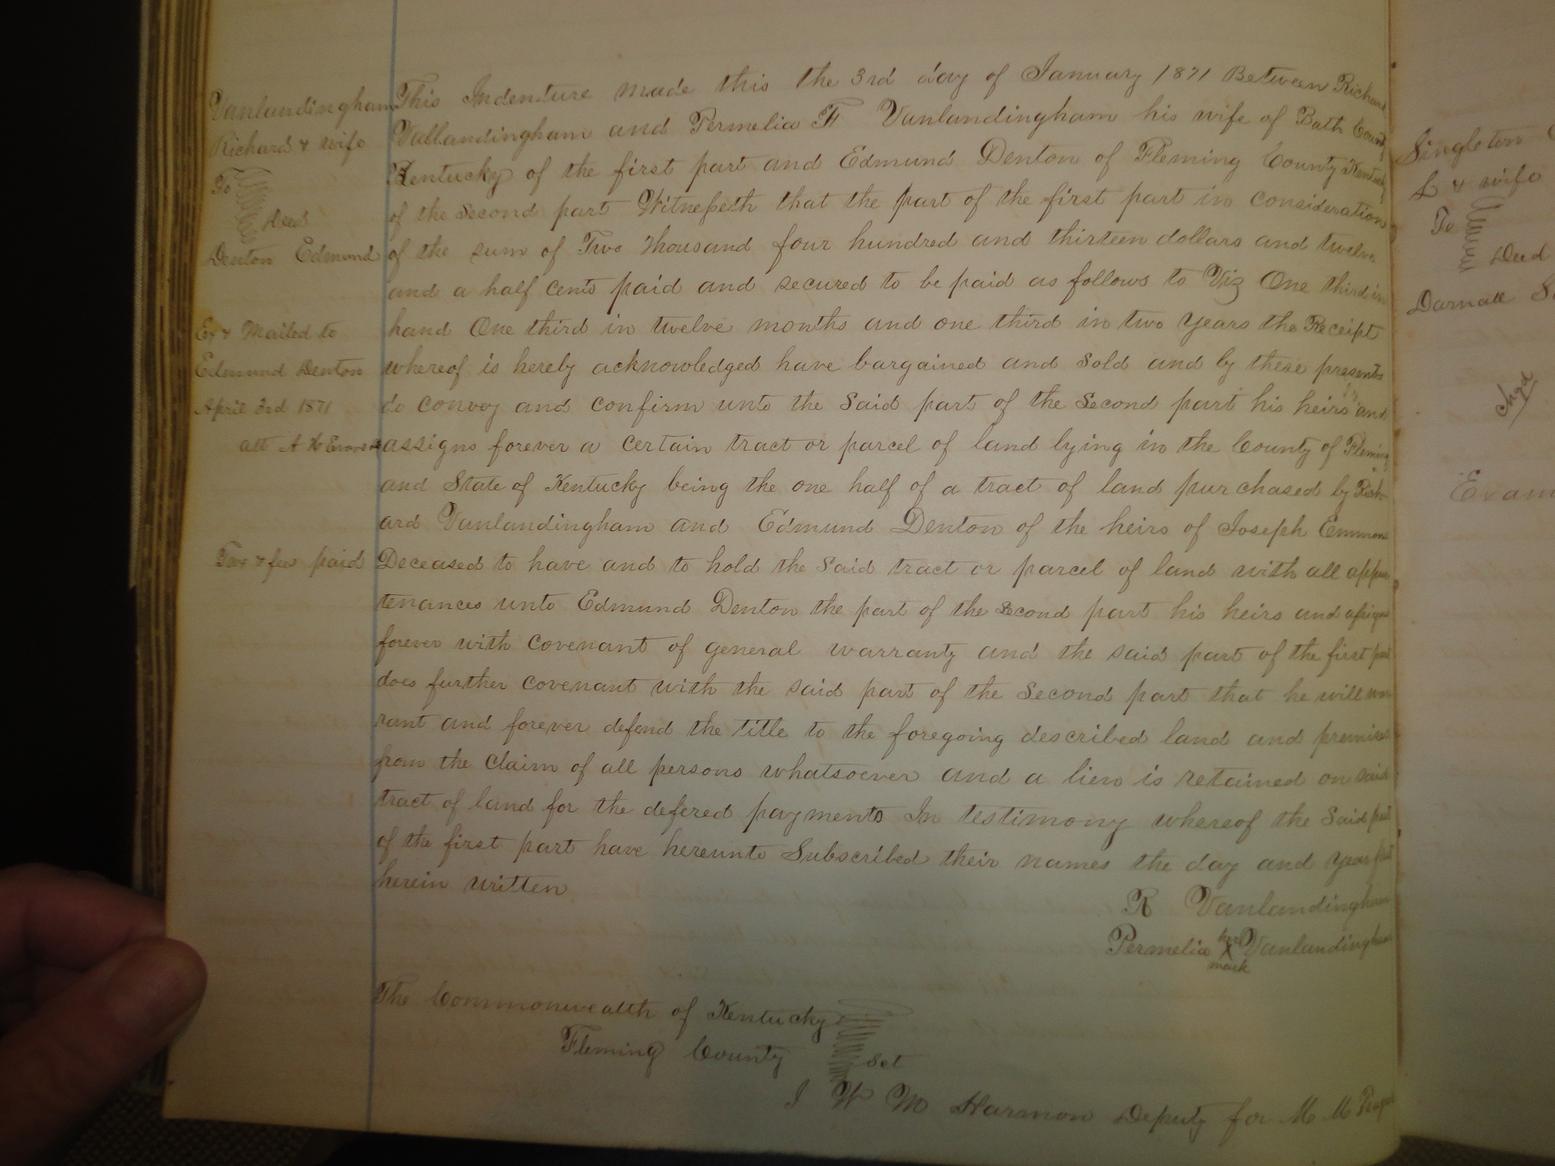 Vanlandingham
Richard & wife
To
deed
Denton Edmund
Ex & Mailed to
Edmund Denton
April 3rd 1871
att A H
Tax & fee paid
This Indenture made this the 3rd day of January 1871 Between Richard
Vallandingham and Permelia F Vanlandingham his wife of Bath County
Kentucky of the first part and Edmund Denton of Fleming County Kentucky
of the Second part Witnesseth that the part of the first part in consideration
of the sum of Two Thousand four hundred and thirteen dollars and twelve
and a half cents paid and secured to be paid as follows to Viz One third in
hand One third in twelve months and one third in two years the Receipt
whereof is hereby acknowledged have bargained and Sold and by these presents
do convey and confirm unto the Said part of the Second part his heirs and
assigns forever a certain tract or parcel of land lying in the County of Fleming
and State of Kentucky being the one half of a tract of land purchased by Rich-
ard Vanlandingham and Edmund Denton of the heirs of Joseph Emmons
Deceased to have and to hold the Said tract or parcel of land with all appur
tenances unto Edmund Denton the part of the Second part his heirs and assigns
forever with covenant of general warranty and the said part of the first part
does further covenant with the said part of the Second part that he will war
rant and forever defend the title to the foregoing described land and premises
from the claim of all persons whatsoever and a lien is retained on said
tract of land for the defered payments In testimony whereof the Said part
of the first part have hereunto Subscribed their names the day and year first
herein written
R Vanlandingham
Permelia her X mark Vanlandingham
The Commonwealth of Kentucky
Fleming County Set
I W M Harmon Deputy for M M
Singleton
L & wife
To
Deed
Darnall